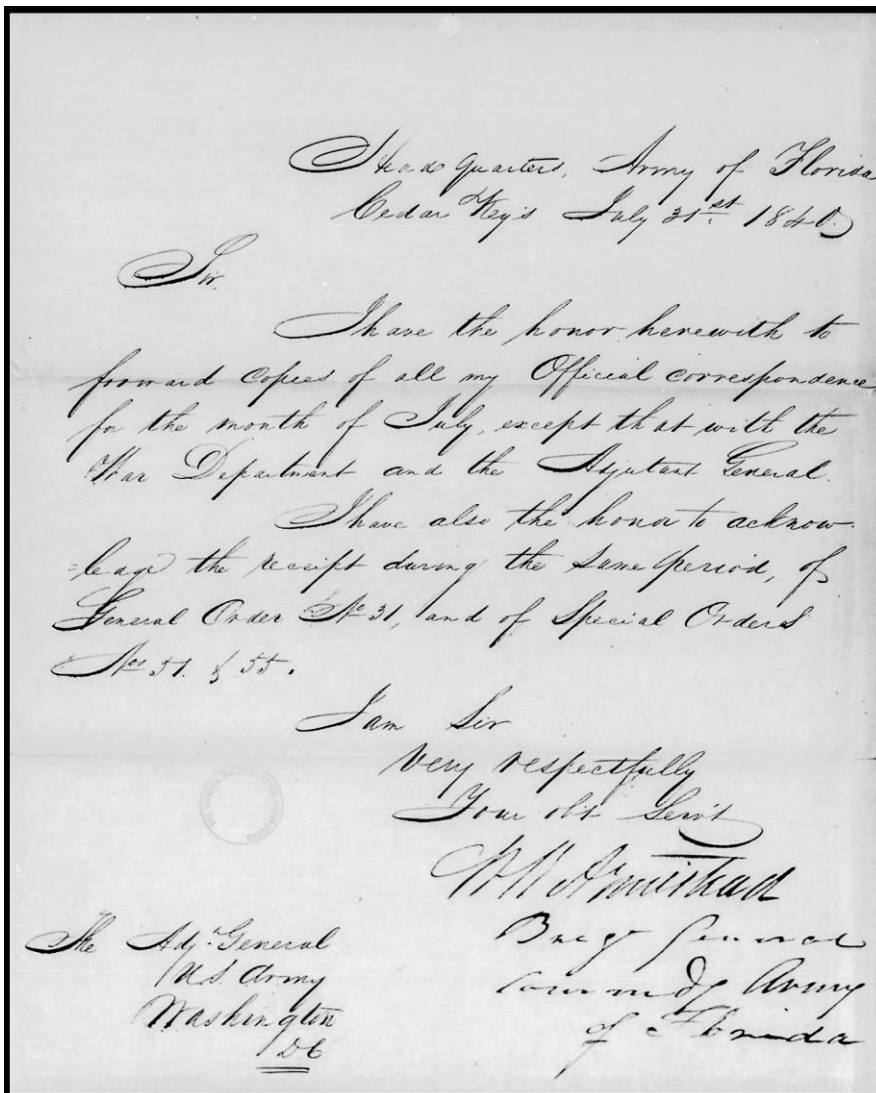 Head Quarters, Army of Florida
Cedar Key's July 31st 1840.
Sir.
I have the honor herewith to
forward copies of all my Official correspondence
for the month of July, except that with the
War Department and the Adjutant General.
I have also the honor to acknow-
=ledge the receipt during the same period, of
General Order No 31, and of Special Orders
Nos 51. & 55.
I am Sir
Very respectfully
Your obt Servt
W K Armistead
Brigr General
Commdg Army
of Florida
The Adjt General
U.S. Army
Washington
DC